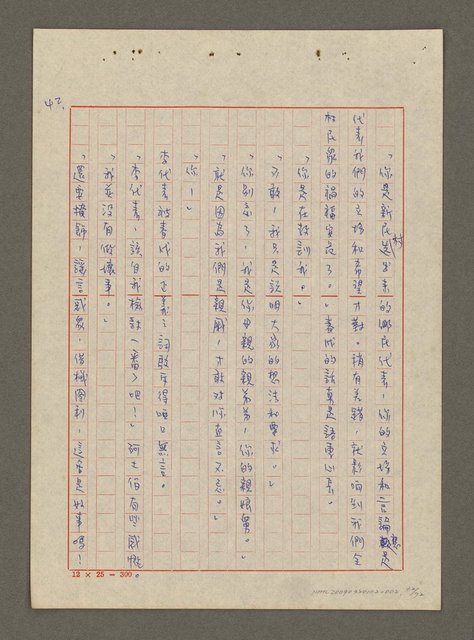 42.
「你是新民村選出來的鄉民代表，你的立場和言論應是
代表我們的立場和希望才對。稍有差錯，就影响到我們全
村民眾的禍福安危了。」春成的話真是語重心長。
「你是在教訓我。」
「不敢，我只是說明大家的想法和要求。」
「你別忘了，我是你母親的親弟弟，你的親娘舅。」
「就是因為我們是親戚，才敢对你直言不忌。」
「你！」
李代表被春成的正義之詞駁斥得啞口無言。
「李代表，該自我檢討一番了吧！」阿土伯有些感慨。
「我並沒有做壞事。」
「還要掩飾，謠言惑眾，借機圖利，這些是好事嗎！
12 × 25 = 300
NMTL20090320102-002
42/72